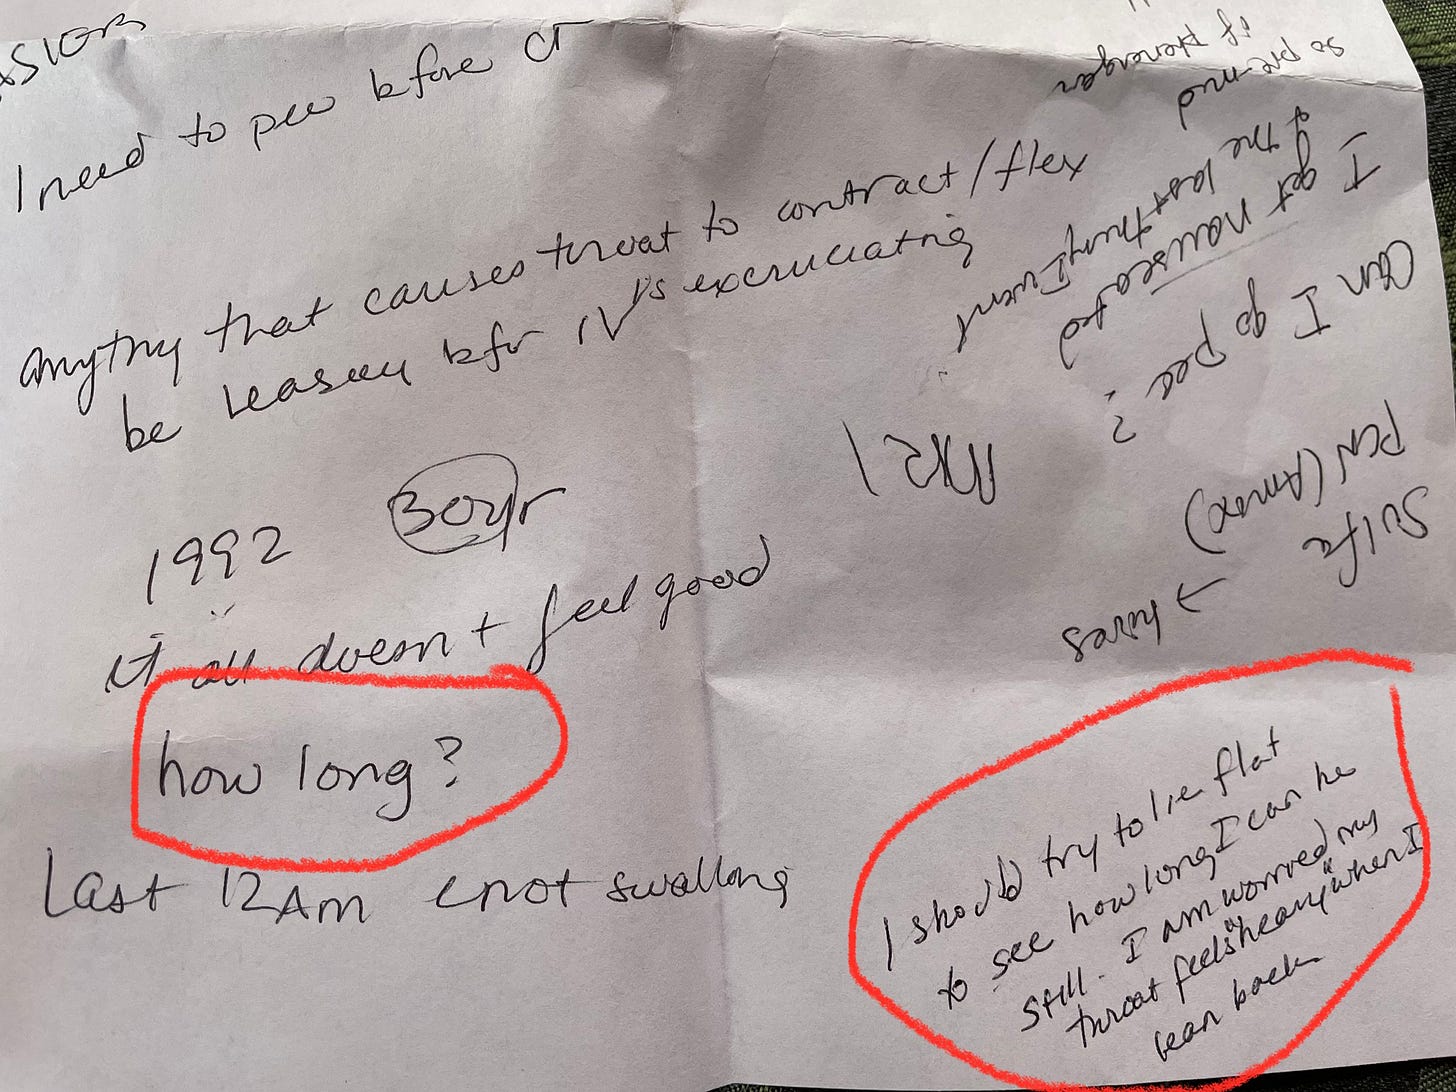 ASIER
I need to pee bfore CT
anything that causes throat to contract/flex
be bfr IV is excruciating
1992 30yr
it all doesn't feel good
how long?
Last 12AM not swallong
so pre-med
if phenergan
I get nauseated
the last thing I want
Can I go pee?
MRI
PCN (Amox)
Sulfa
→ hives
I should try to lie flat
to see how long I can be
still. I am worried my
throat feels "heavy" when I
lean back